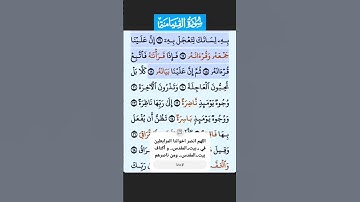 سُورَةُ القِيَامَةِ
بِهِۦ لِسَانَكَ لِتَعْجَلَ بِهِۦٓ ۝ إِنَّ عَلَيْنَا
جَمْعَهُۥ وَقُرْءَانَهُۥ ۝ فَإِذَا قَرَأْنَٰهُ فَٱتَّبِعْ
قُرْءَانَهُۥ ۝ ثُمَّ إِنَّ عَلَيْنَا بَيَانَهُۥ ۝ كَلَّا بَلْ
تُحِبُّونَ ٱلْعَاجِلَةَ ۝ وَتَذَرُونَ ٱلْءَاخِرَةَ ۝
وُجُوهٌ يَوْمَئِذٍ نَّاضِرَةٌ ۝ إِلَىٰ رَبِّهَا نَاظِرَةٌ ۝
وَوُجُوهٌ يَوْمَئِذٍۭ بَاسِرَةٌ ۝ تَظُنُّ أَن يُفْعَلَ
بِهَا
وَقِيلَ
اللهم انصر اخواننا المرابطين
في بيت المقدس و أكناف
بيت المقدس ومن ناصرهم